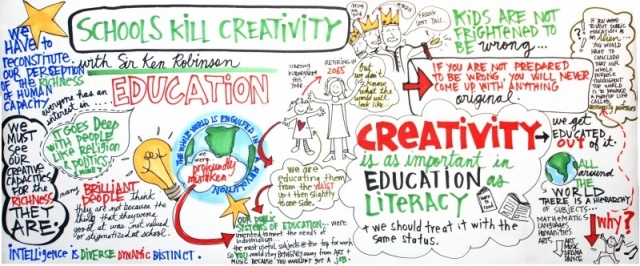 WE
HAVE to
RECONSTITUTE
OUR PERCEPTION
OF THE RICHNESS
OF HUMAN
CAPACITY
SCHOOLS KILL CREATIVITY
with Sir Ken Robinson
everyone has an
interest in...
EDUCATION
IT GOES Deep
WITH PEOPLE
LIKE RELIGION
& POLITICS,
& MONEY
WE
MUST
SEE
OUR
CREATIVE
CAPACITIES
FOR the
RICHNESS
THEY
ARE.
many BRILLIANT PEOPLE think
they are not because the
thing that they were
good at was not valued
or stigmatized at school.
INTELLIGENCE IS DIVERSE DYNAMIC DISTINCT.
THE WHOLE WORLD IS ENGULFED IN A REVOLUTION
profoundly
mistaken
OUR PUBLIC
SYSTEMS OF EDUCATION... were
invented to meet the needs of
industrialism.
the most useful subjects @ the top for work
so YOU would stay BENIGNLY away from ART +
MUSIC BECAUSE YOU WOULDN'T GET A JOB
STARTING
KINDERGARTEN
THIS
YEAR
RETIRING IN
2065
but
we don't
know
what the
world will
look like
FRANK
SENT THIS
we are
educating them
from the WAIST
up + then slightly
to one side.
KIDS ARE NOT
FRIGHTENED TO
BE wrong...
IF YOU ARE NOT PREPARED
TO BE WRONG, YOU WILL NEVER
COME UP WITH ANYTHING
original.
CREATIVITY
is as important in
EDUCATION as
LITERACY
+ we should treat it with the
same status.
IF YOU WERE
TO VISIT PUBLIC
EDUCATION AS
AN Alien...
YOU WOULD
HAVE TO
CONCLUDE
THAT OUR
WHOLE
PURPOSE
THROUGHOUT
THE WORLD
IS TO PRODUCE
we get
EDUCATED
OUT of it.
All
around
the
WORLD
THERE IS A HIERARCHY
OF SUBJECTS...
MATHEMATICS
LANGUAGES
HUMANITIES
ARTS
ART
MUSIC
DRAMA
DANCE
why?